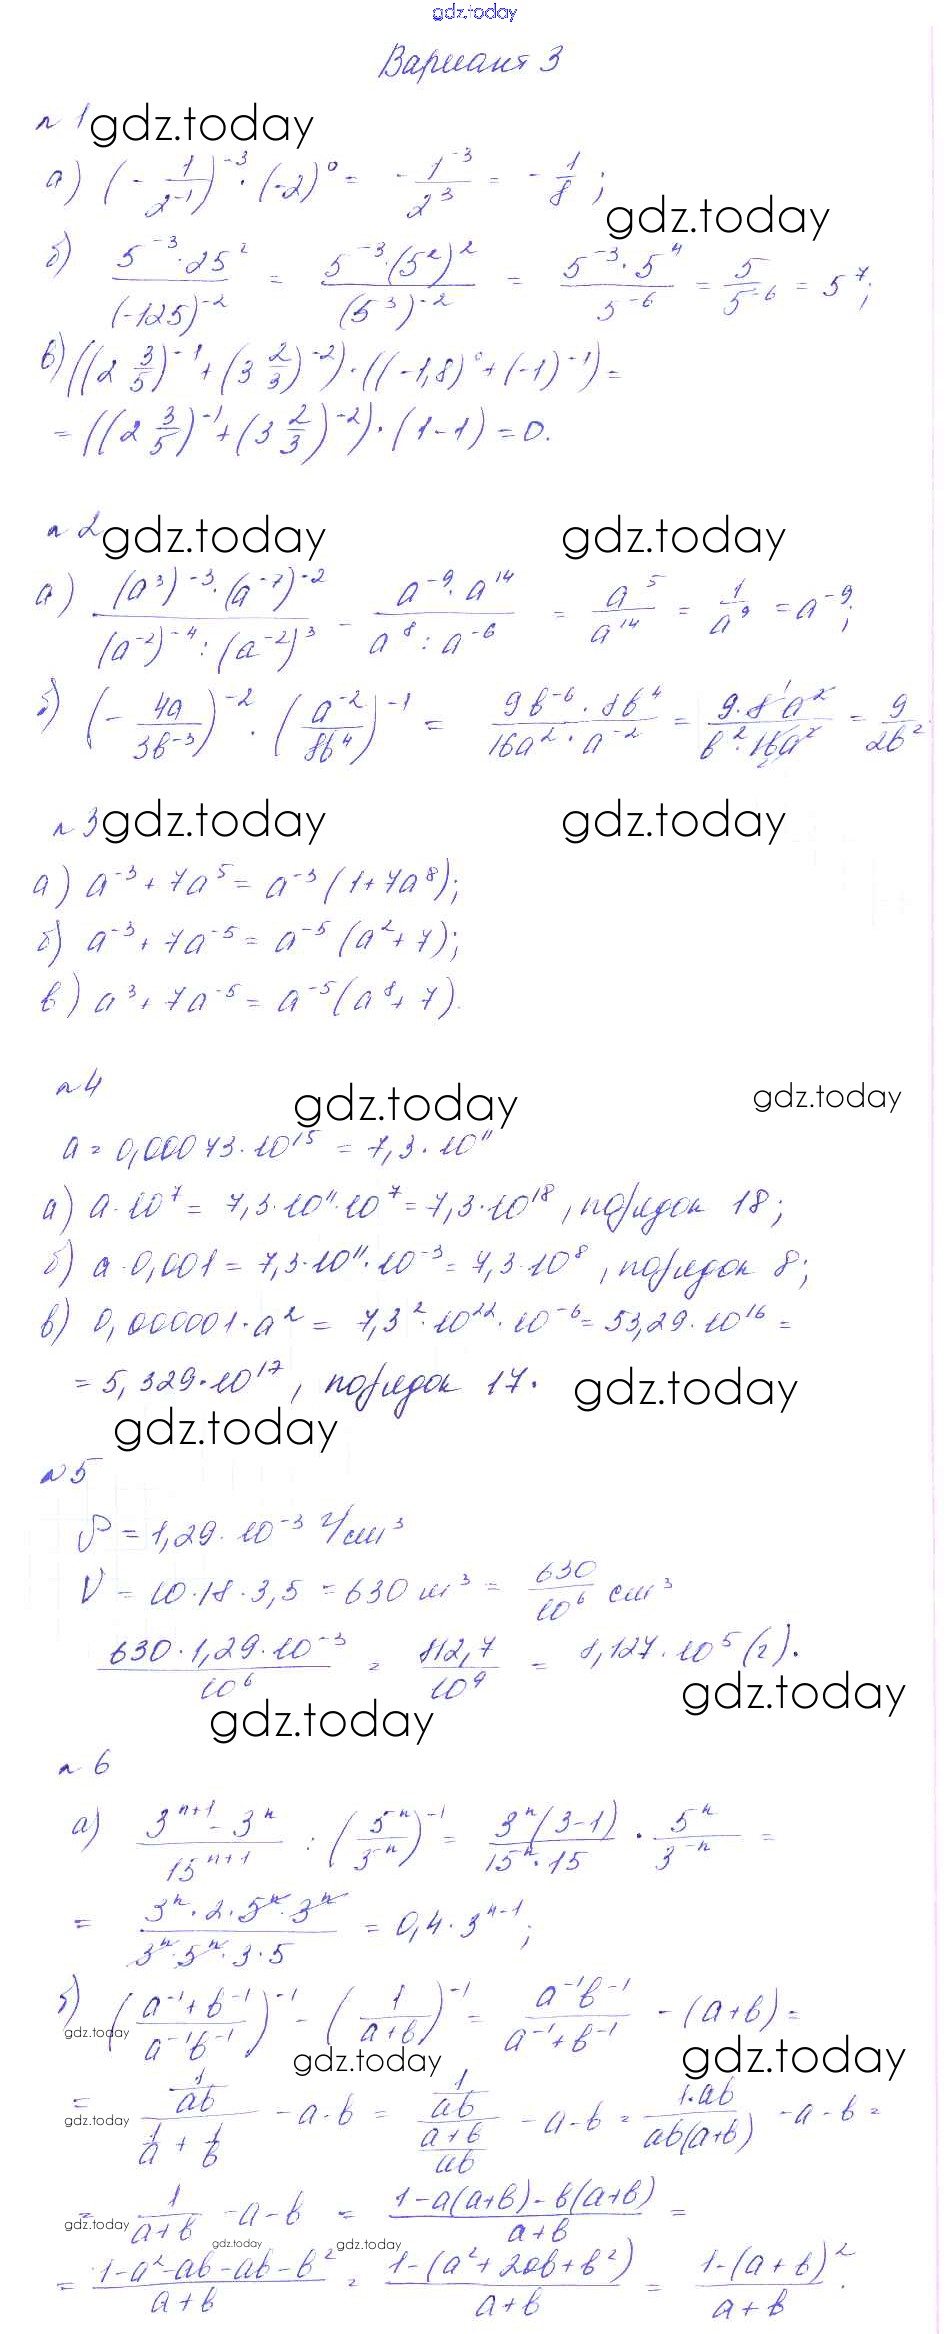 gdz.today
Вариант 3
n 1 gdz.today
а) (-1/2^-1)^-3 · (-2)^0 = -1^-3/2^3 = -1/8;
gdz.today
б) 5^-3·25^2/(-125)^-2 = 5^-3·(5^2)^2/(5^3)^-2 = 5^-3·5^4/5^-6 = 5/5^-6 = 5^7;
в) ((2 3/5)^-1 + (3 2/3)^-2)·((-1,8)^0 + (-1)^-1) =
= ((2 3/5)^-1 + (3 2/3)^-2)·(1-1) = 0.
n 2 gdz.today gdz.today
а) (a^3)^-3·(a^-7)^-2/(a^-2)^-4:(a^-2)^3 - a^-9·a^14/a^8:a^-6 = a^5/a^14 = 1/a^9 = a^-9;
б) (-4a/3b^-3)^-2 · (a^-2/8b^4)^-1 = 9b^-6·8b^4/16a^2·a^-2 = 9·8a^2/b^2·16a^2 = 9/2b^2
n 3 gdz.today gdz.today
а) a^-3 + 7a^5 = a^-3 (1+7a^8);
б) a^-3 + 7a^-5 = a^-5 (a^2+7);
в) a^3 + 7a^-5 = a^-5 (a^8+7).
n 4
gdz.today gdz.today
a = 0,00073·10^15 = 7,3·10^11
а) a·10^7 = 7,3·10^11·10^7 = 7,3·10^18, порядок 18;
б) a·0,001 = 7,3·10^11·10^-3 = 7,3·10^8, порядок 8;
в) 0,000001·a^2 = 7,3^2·10^22·10^-6 = 53,29·10^16 =
= 5,329·10^17, порядок 17. gdz.today
gdz.today
n 5
ρ = 1,29·10^-3 г/см^3
V = 10·18·3,5 = 630 м^3 = 630/10^6 см^3
630·1,29·10^-3/10^6 = 812,7/10^9 = 8,127·10^5 (г).
gdz.today
gdz.today
n 6
а) 3^n+1 - 3^n/15^n+1 : (5^n/3^-n)^-1 = 3^n(3-1)/15^n·15 · 5^n/3^-n =
= 3^n·2·5^n·3^n/3^n·5^n·3·5 = 0,4·3^n-1;
б) (a^-1+b^-1/a^-1b^-1)^-1 - (1/a+b)^-1 = a^-1b^-1/a^-1+b^-1 - (a+b) =
gdz.today
gdz.today gdz.today
= 1/ab/1/a + 1/b - a - b = 1/ab/a+b/ab - a - b = 1·ab/ab(a+b) - a - b =
gdz.today
= 1/a+b - a - b = 1-a(a+b)-b(a+b)/a+b =
gdz.today
gdz.today gdz.today
= 1-a^2-ab-ab-b^2/a+b = 1-(a^2+2ab+b^2)/a+b = 1-(a+b)^2/a+b.